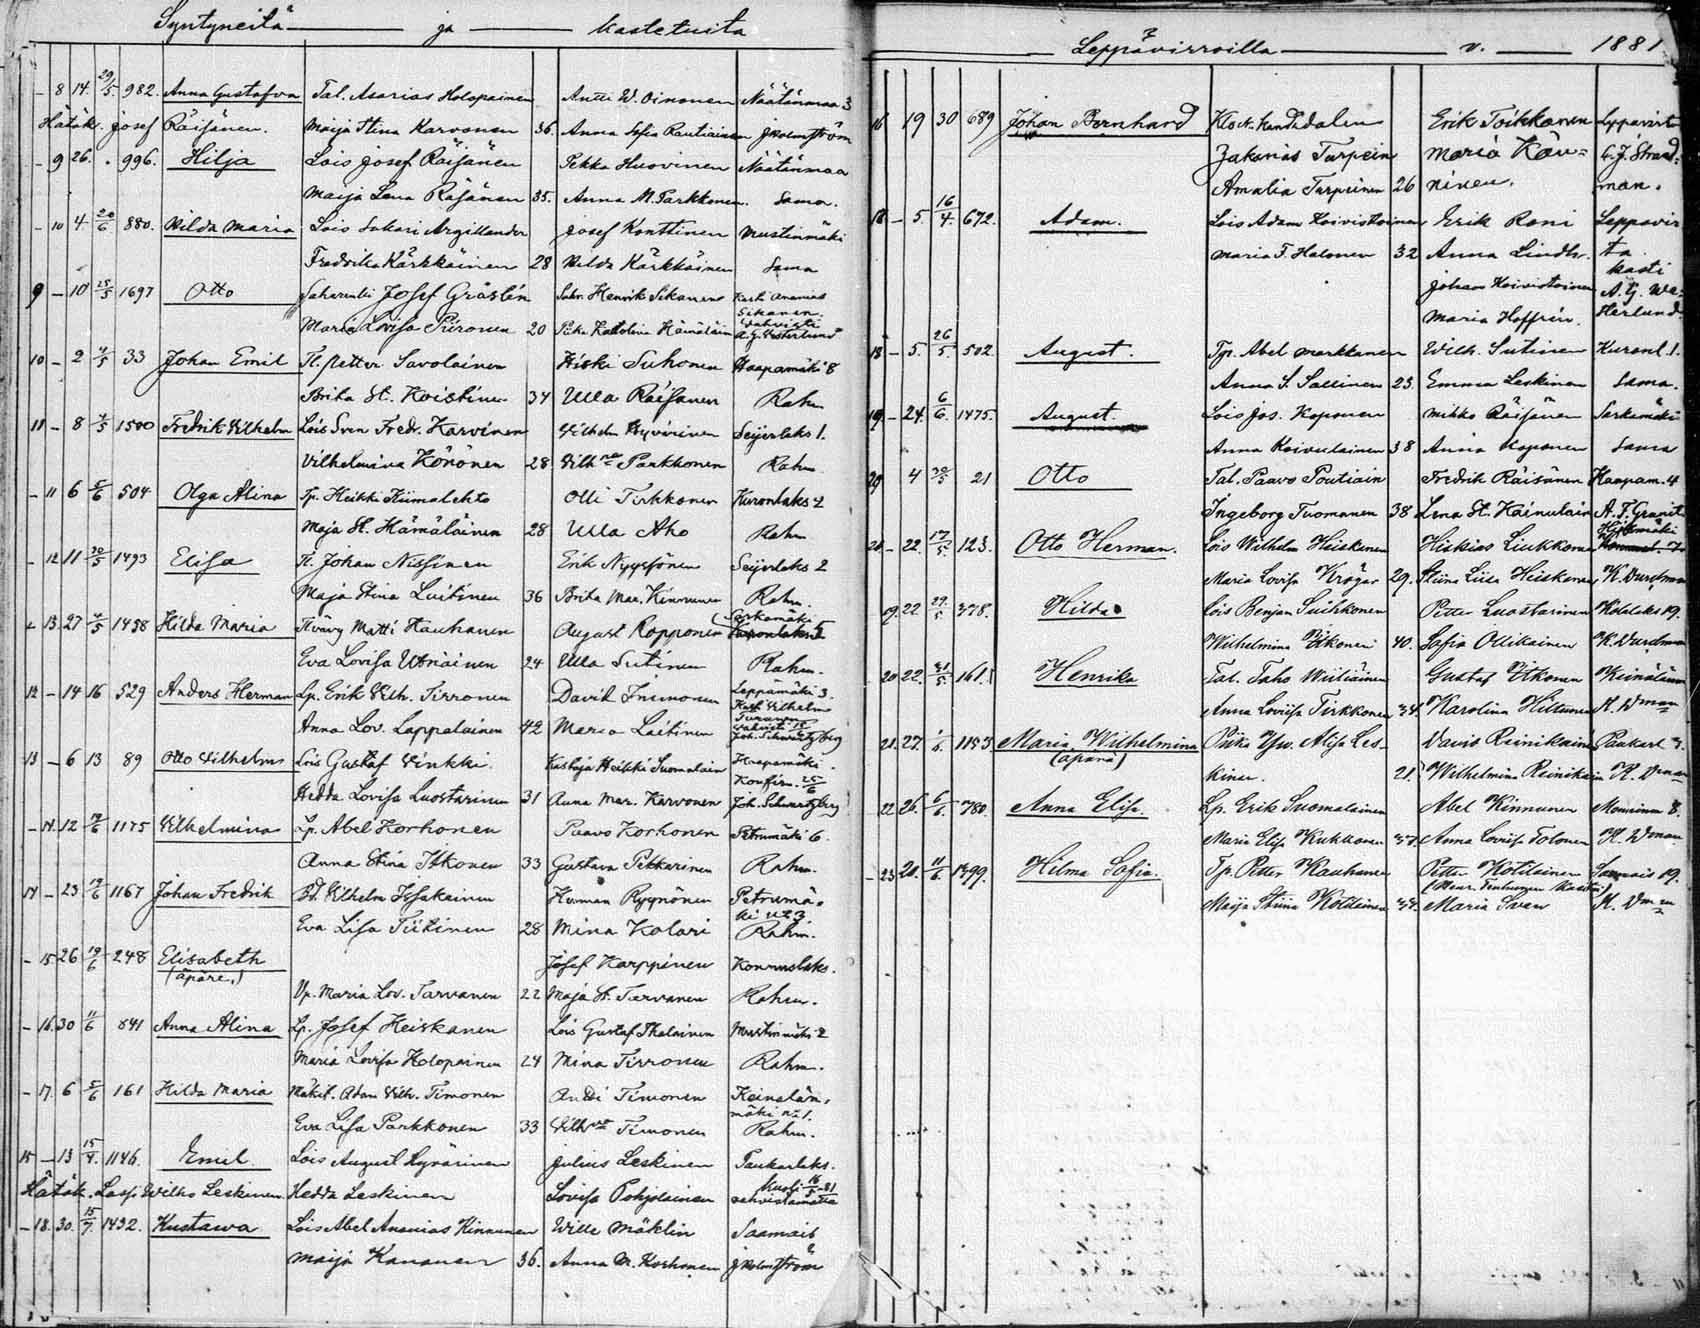 Syntyneitä ja kastetuita
- 8 14. 29/5. 982. Anna Gustafva Tal. Asarias Holopainen Antti W. Oinonen Näätänmaa 3
Hätäk. Josef Räisänen. Maija Stina Karvonen 36. Anna Sofia Rautiainen J Holmström
- 9 26. . 996. Hilja Lois Josef Räisänen Pekka Huovinen Näätänmaa
Maija Lena Räsänen 35. Anna M. Parkkonen. Sama.
- 10 4 20/6 880. Hilda Maria Lois Sakari Argillander Josef Konttinen Mustinmäki
Fredrika Kärkkäinen 28 Hilda Kärkkäinen Sama
9 - 10 25/5 1697 Otto Josef Gråsten Henrik Sikanen Kasti Ananias
Sikanen.
Maria Lovisa Piironen 20 Piika Katolina Hämäläin vahvisti
A. G. Westerlund
10 - 2 4/5 33 Johan Emil Tl. Petter Savolainen Hiski Suhonen Haapamäki 8
Brita St. Koistinen 34 Ulla Räisänen Rahm
11 - 8 4/5 1500 Fredrik Vilhelm Lois Sven Fredr. Karvinen Vilhelm Hyvärinen Seijerlaks 1.
Vilhelmina Könönen 28 Vilhna Parkkonen Rahm.
- 11 6 5/6 504 Olga Alina Tp. Heikki Kiimalehto Olli Tirkkonen Kuronlaks 2
Maja St. Hämäläinen 28 Ulla Aho Rahm
- 12 11 30/5 1493 Elisa Tl. Johan Nissinen Erik Nyyssönen Seijerlaks 2
Maja Stina Luitinen 36 Brita Mar. Kinnunen Rahm.
- 13. 27 4/5 1458 Hilda Maria Tlvävy Matti Hauhanen August Ropponen Sarkamäki
Eva Lovisa Utriainen 24 Ulla Sutinen Rahm.
12 - 14 16 529 Anders Herman Lp. Erik Vilh. Tirronen David Immonen Leppämäki 3.
Kast. Vilhelm
Turunen
Anna Lov. Lappalainen 42 Maria Laitinen
Joh. Schwartzberg
13 - 6 13 89 Otto Vilhelm Lois Gustaf Vinkki. Kastaja Heikki Suomalain Haapamäki.
Konfirm. 25/6
Hedda Lovisa Luostarinen 31 Anna Mar. Karvonen Joh. Schwartzberg
- 14. 12 19/6 1175 Vilhelmina Lp. Abel Korhonen Paavo Korhonen Petrumäki 6.
Anna Stina Itkonen 33 Gustava Pekkarinen Rahm.
14 - 23 19/6 1167 Johan Fredrik Vilhelm Issakainen Herman Ryynönen Petrumä-
ki n:2 3
Eva Lisa Tiitinen 28 Mina Kolari Rahm.
- 15 26 19/6 248 Elisabeth Josef Karppinen Konnuslaks.
(äpäre,)
Vp. Maria Lov. Tarvanen 22 Maja St. Tarvanen Rahm.
- 16. 30 11/6 841 Anna Alina Lp. Josef Heiskanen Lois Gustaf Ihalainen Mustinmäki 2
Maria Lovisa Holopainen 24 Mina Tirronen Rahm.
- 17. 6 5/6 161 Hilda Maria Mäkit. Adam Vilh. Timonen Antti Timonen Keinälän-
mäki n:1.
Eva Lisa Parkkonen 33 Vilhna Timonen Rahm.
15 - 13 15/4. 1146. Emil Lois August Hyvärinen Julius Leskinen Paukarlaks.
Hätäk. Lasse Wilho Leskinen Hedda Leskinen Lovisa Pohjolainen Kuoli 16/5-81
vahvistamatta
- 18. 30. 15/7. 1432. Kustawa Lois Abel Ananias Kinnunen Wille Mäklin Saamais
Maija Kananen 36. Anna M. Korhonen J Holmström
Leppävirroilla v. 1881
16 19 30 689 Johan Bernhard Erik Toikkanen Leppävirta
Zakarias Turpein Maria Kau= A. J. Strand=
Amalia Turpeinen 26 ninen. man.
18 - 5 16/4. 672. Adam. Lois Adam Koivistoinen Erik Roni Leppävir
Maria F. Halonen 32 Anna Lindh. ta
Kasti
Johan Koivistoinen A. G. We=
Maria Hoffrén. sterlund.
18 - 5. 26/5. 502. August. Tp. Abel Markkanen Wilh. Sutinen Kuronl. 1.
Anna S. Sallinen 23. Emma Leskinen Sama.
19 - 24. 6/6. 1475. August Lois Jos. Koponen Mikko Räisänen Sarkamäki
Anna Koivulainen 38 Anna Koponen Sama
20 4 30/5 21 Otto Tal. Paavo Poutiain Fredrik Räisänen Haapam. 4
Ingeborg Tuomanen 38 Lena St. Kainulain A. F. Granit
20 - 22. 17/5. 123. Otto Herman. Lois Wilhelm Heiskanen Hiskias Liukkonen
Maria Lovisa Kröger 29. Stiina Liisa Heiskanen K. Durchman
19. 22 29/5 378. Hilda Lois Benjam Suihkonen Petter Luostarinen Kotalaks 19.
Wilhelmina Itkonen 40. Sofia Ollikainen K. Durchman
20 22. 21/5. 161. Henrika Tal. Taho Wiitiäinen Gustaf Itkonen Keinäläm
Anna Loviisa Tirkkonen 34. Karolina Hiltunen K. Dman
21. 27. 1/6. 1153 Maria Wilhelmina Piika Alisa Les- David Reinikain Paukarl 3.
(äpärä)
kinen. 21. Wilhelmina Reinikain K. Dman
22 26. 6/6. 780. Anna Elisa. Lp. Erik Suomalainen Abel Kinnunen Moninm 8.
Maria Elisa Kukkonen 37. Anna Loviisa Tolonen K. Dman
- 23 20. 11/6. 1399. Hilma Sofia. Tp. Petter Kauhanen Petter Kotilainen Saamais 19.
Maija Stiina Kotilainen 34. Maria Sven K. Dman